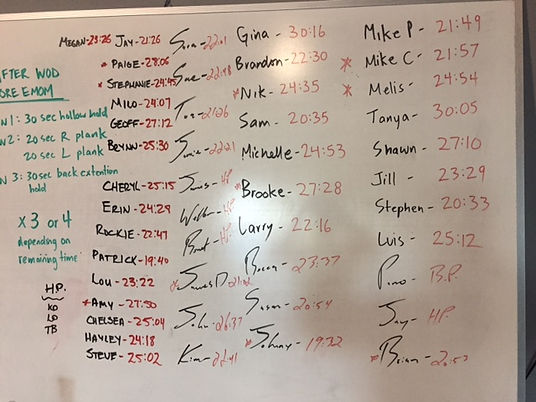 AFTER WOD
CORE EMOM
MIN 1: 30 sec hollow hold
MIN 2: 20 sec R plank
20 sec L plank
MIN 3: 30 sec back extention
hold
X 3 or 4
depending on
remaining time
HP.
KO
LO
TB
MEGAN-23:26
JAY-21:26
* PAIGE-28:06
* STEPHANIE-24:45
MILO-24:07
GEOFF-27:12
BRYNN-25:30
CHERYL-25:15
ERIN-24:28
ROCKIE-22:47
PATRICK-19:40
LOU-23:22
*AMY-27:50
CHELSEA-25:04
HAYLEY-24:18
STEVE-25:02
Sue-22:48
Tom-21:26
James-HP
Brent-HP
*James D-21:02
John-26:37
Kim-22:41
Gina-30:16
Brandon-22:30
*Nik-24:35
Sam-20:35
Michelle-24:53
*Brooke-27:28
Larry-22:16
23:37
Susan-20:54
*Johnny-19:32
Mike P-21:49
* Mike C-21:57
* Melis-24:54
Tanya-30:05
Shawn-27:10
Jill-23:29
Stephen-20:33
Luis-25:12
Pino-B.P.
Jay-HP.
*Brian-20:53